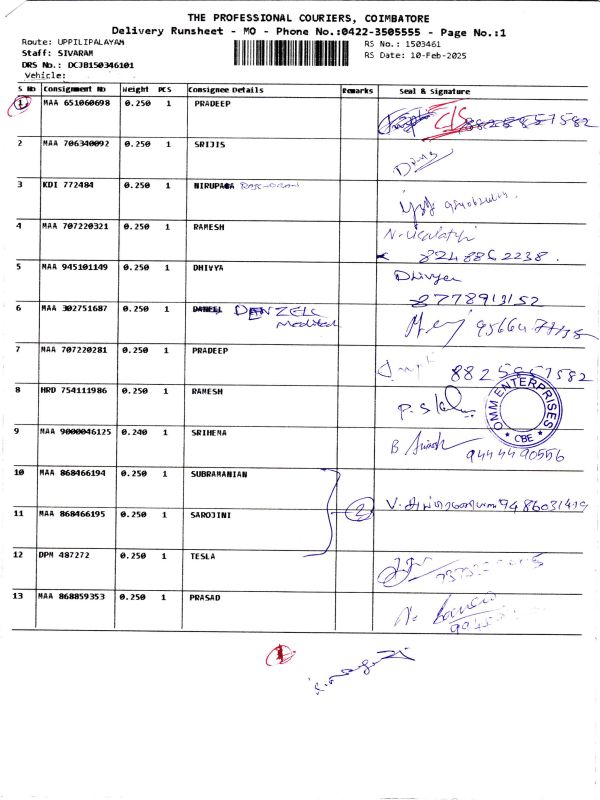 THE PROFESSIONAL COURIERS, COIMBATORE
Delivery Runsheet - MO - Phone No.:0422-3505555 - Page No.:1
Route: UPPILIPALAYAM
RS No.: 1503461
Staff: SIVARAM
RS Date: 10-Feb-2025
DRS No.: DCJB150346101
Vehicle:
S No Consignment No Weight PCS Consignee Details Remarks Seal & Signature
1 MAA 651060698 0.250 1 PRADEEP C/S 8825857582
2 MAA 706340092 0.250 1 SRIJIS
3 KDI 772484 0.250 1 NIRUPAMA
4 MAA 707220321 0.250 1 RAMESH
8248862238.
5 MAA 945101149 0.250 1 DHIVYA Dhivya
8778913152
6 MAA 302751687 0.250 1 DANIEL DENZELL
Medical
7 MAA 707220281 0.250 1 PRADEEP
8825857582
8 HRD 754111986 0.250 1 RAMESH
OMM ENTERPRISES
* CBE *
9 MAA 9000046125 0.240 1 SRIHEMA
9444490556
10 MAA 868466194 0.250 1 SUBRAMANIAN
2 9486031419
11 MAA 868466195 0.250 1 SAROJINI
12 DPM 487272 0.250 1 TESLA
13 MAA 868859353 0.250 1 PRASAD
1